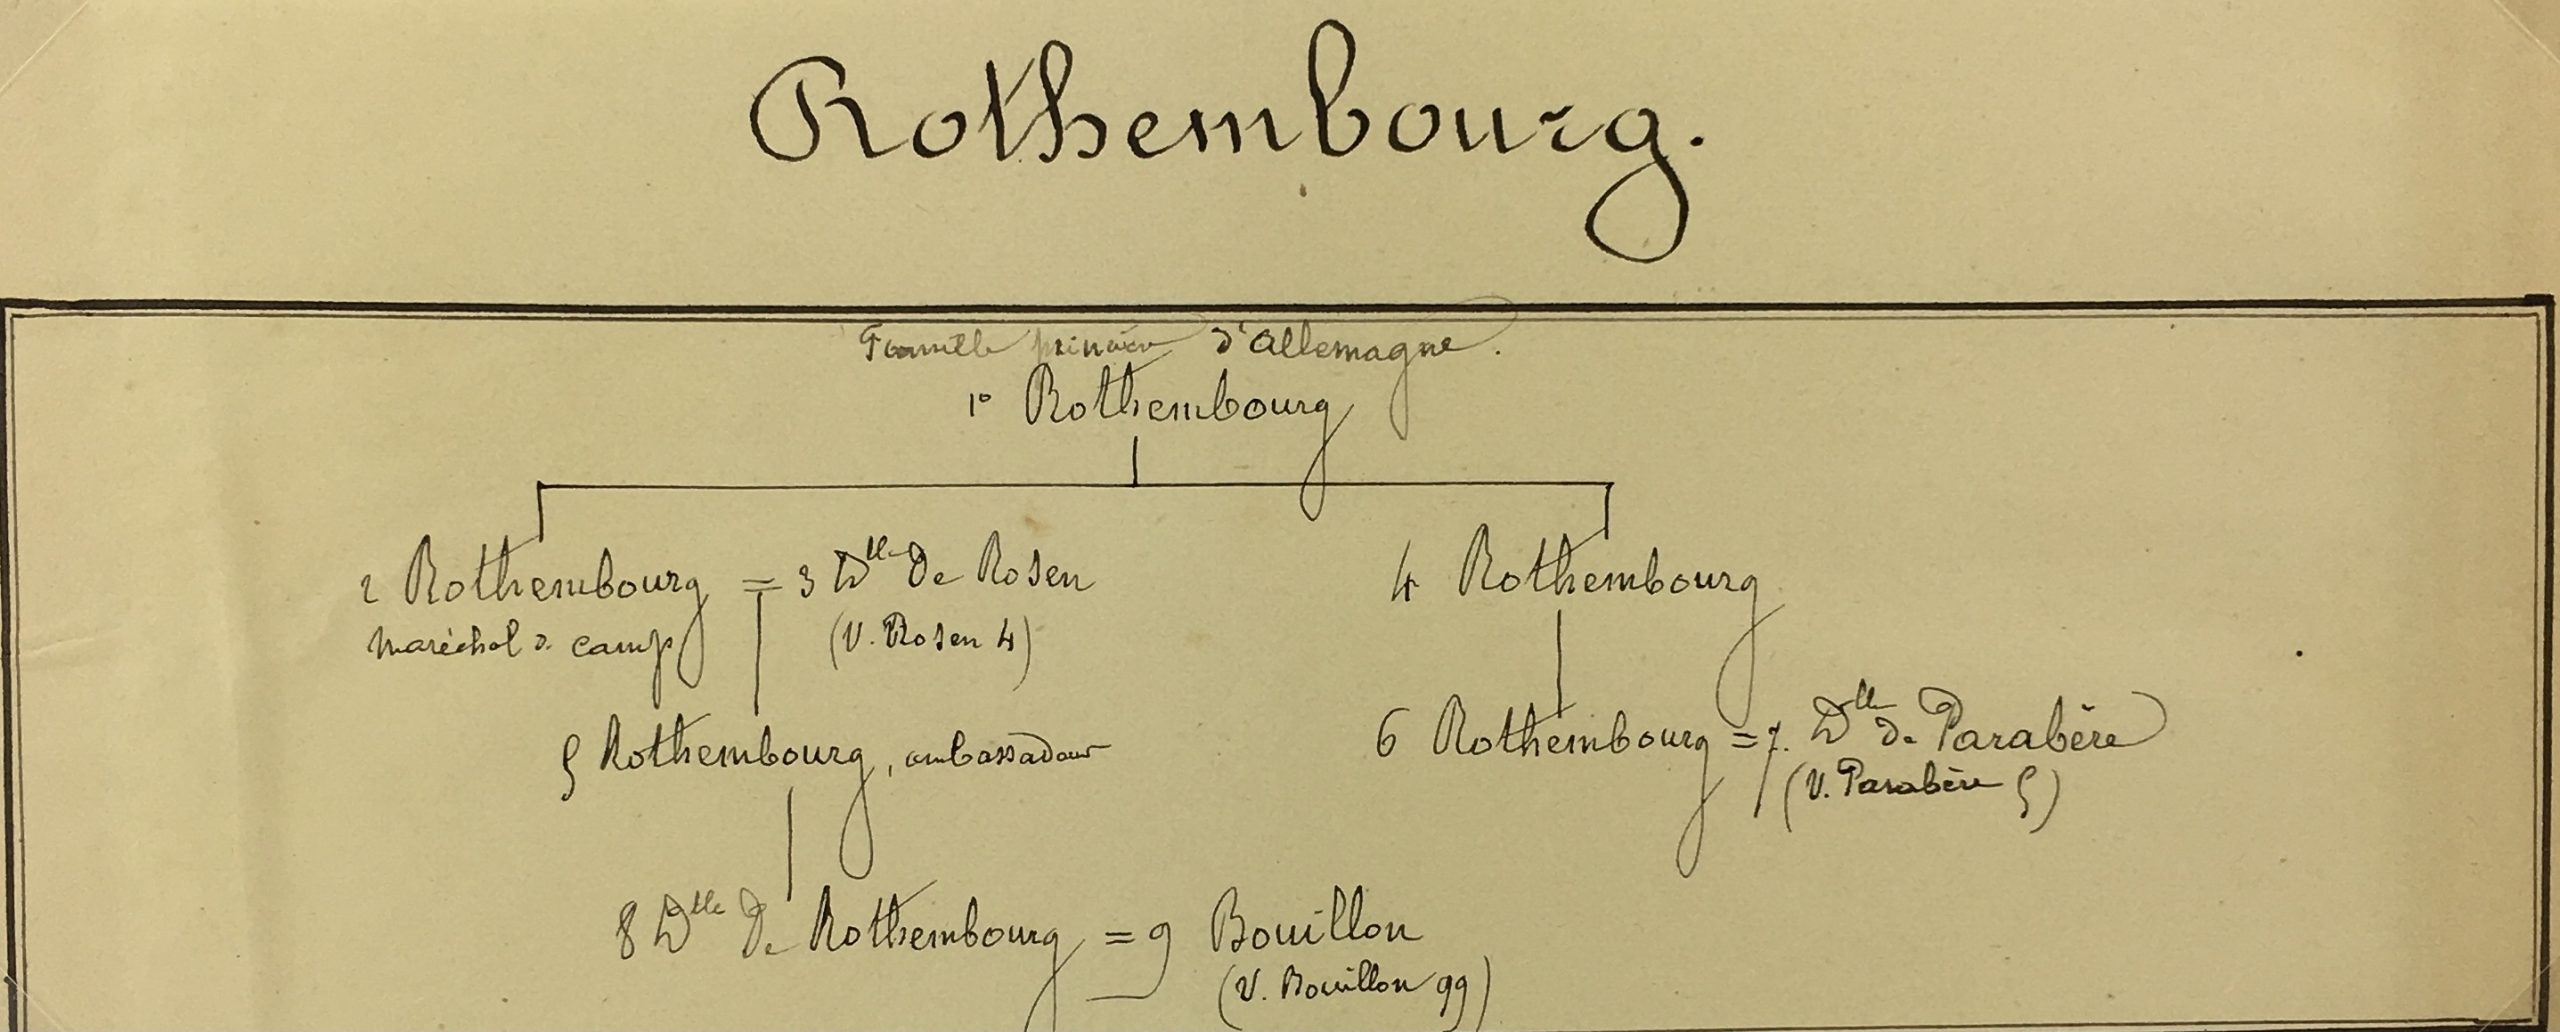 Rothembourg.
Famille d'Allemagne.
1° Rothembourg
2 Rothembourg = 3 Dlle de Rosen
maréchal de camp
(V. Rosen 4)
4 Rothembourg
5 Rothembourg, ambassadeur
6 Rothembourg = 7. Dlle de Parabère
(V. Parabère 5)
8 Dlle de Rothembourg = 9 Bouillon
(V. Bouillon 99)